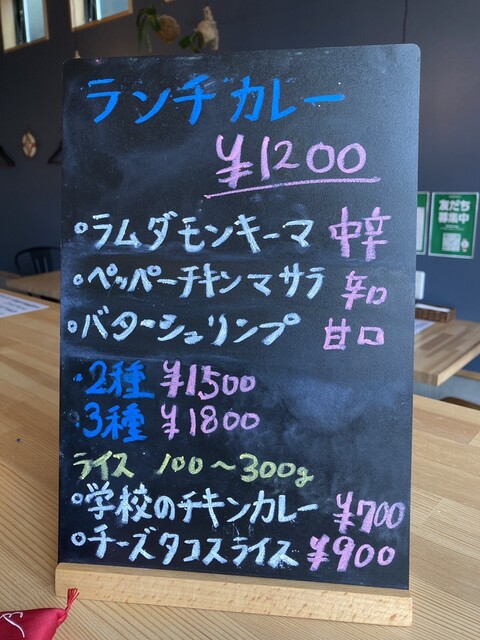 ランチカレー
¥1200
・ラムダモンキーマ 中辛
・ペッパーチキンマサラ 辛口
・バターシュリンプ 甘口
・2種 ¥1500
・3種 ¥1800
ライス 100〜300g
・学校のチキンカレー ¥700
・チーズタコスライス ¥900
友だち
募集中